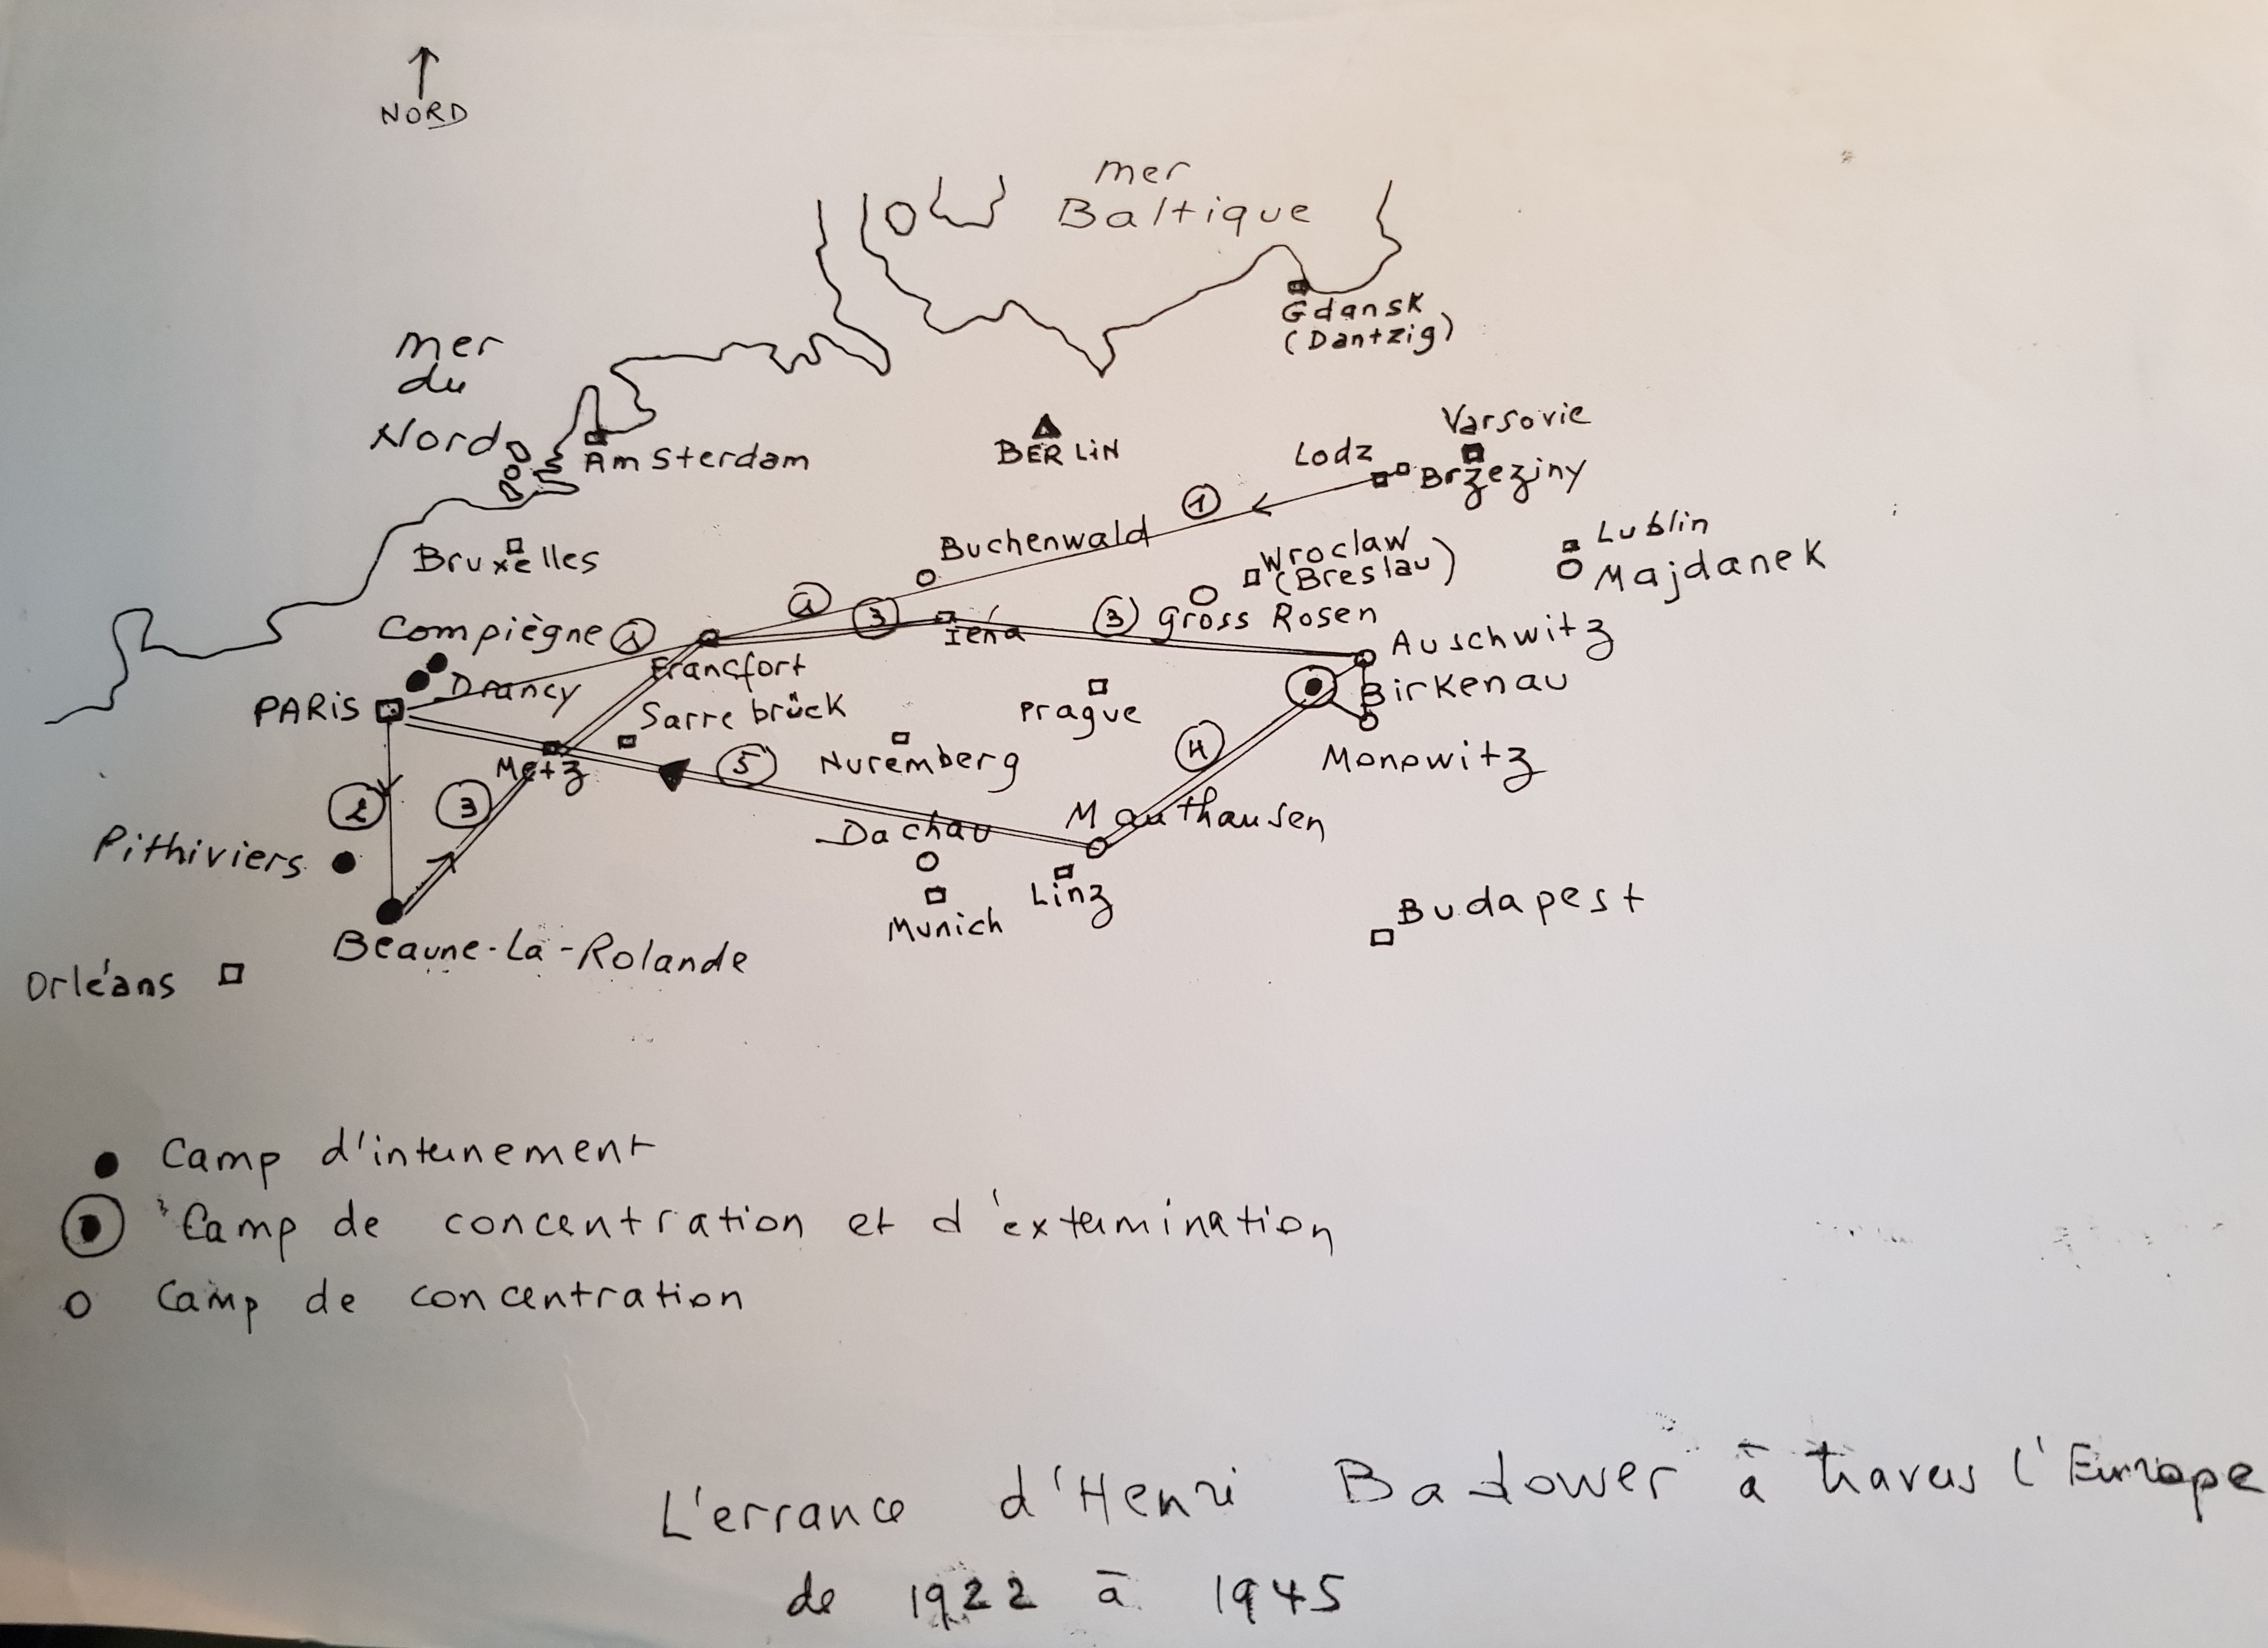 NORD
mer
Baltique
Gdansk
(Dantzig)
mer
du
Nord
Amsterdam
BERLiN
Varsovie
Lodz
Brzeziny
1
Buchenwald
Bruxelles
Wroclaw
(Breslau)
Lublin
Majdanek
Compiègne
1
1
3
Iéna
3
Gross Rosen
Auschwitz
Francfort
Drancy
PARiS
Birkenau
Sarrebrück
Prague
Metz
5
Nuremberg
4
Monowitz
2
3
Mauthausen
Dachau
Pithiviers
Linz
Munich
Budapest
Beaune-La-Rolande
Orléans
Camp d'internement
Camp de concentration et d'extermination
Camp de concentration
L'errance d'Henri Badower à travers l'Europe
de 1922 à 1945